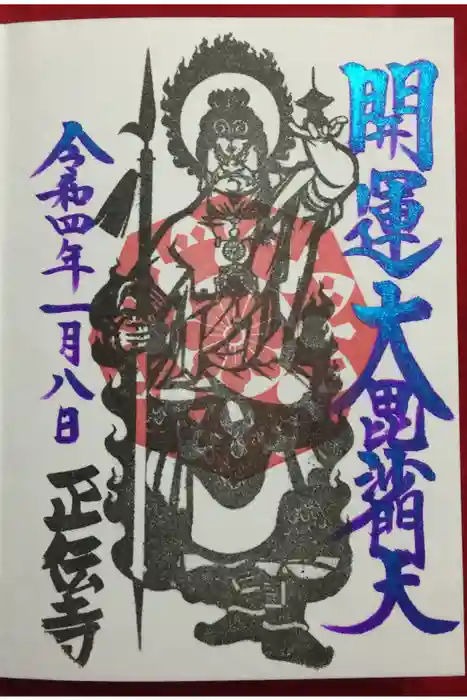 開運大毘沙門天
令和四年一月八日
正伝寺